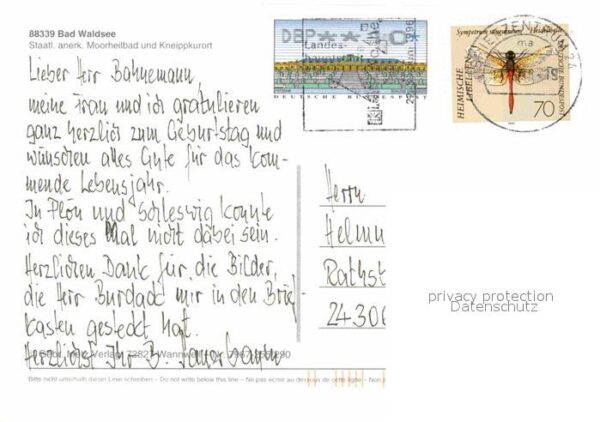 88339 Bad Waldsee
Staatl. anerk. Moorheilbad und Kneippkurort
Lieber Herr Bahnemann,
meine Frau und ich gratulieren
ganz herzlich zum Geburtstag und
wünschen alles Gute für das kom-
mende Lebensjahr.
In Plön und Schleswig konnte
ich dieses Mal nicht dabei sein.
Herzlichen Dank für die Bilder,
die Herr Burdack mir in den Brief-
kasten gesteckt hat.
Herzlichst Ihr B.
Verlag 72827 Wannweil
Bitte nicht unterhalb dieser Linie schreiben – Do not write below this line – Ne pas écrire au dessous de cette ligne – Non
DBP
Landes-
DEUTSCHE BUNDESPOST
1996
Sympetrum
HEIMISCHE
LIBELLEN
DEUTSCHE BUNDESPOST
70
BRIEFZENTRUM
Herrn
Helmu
Rathst
24306
privacy protection
Datenschutz